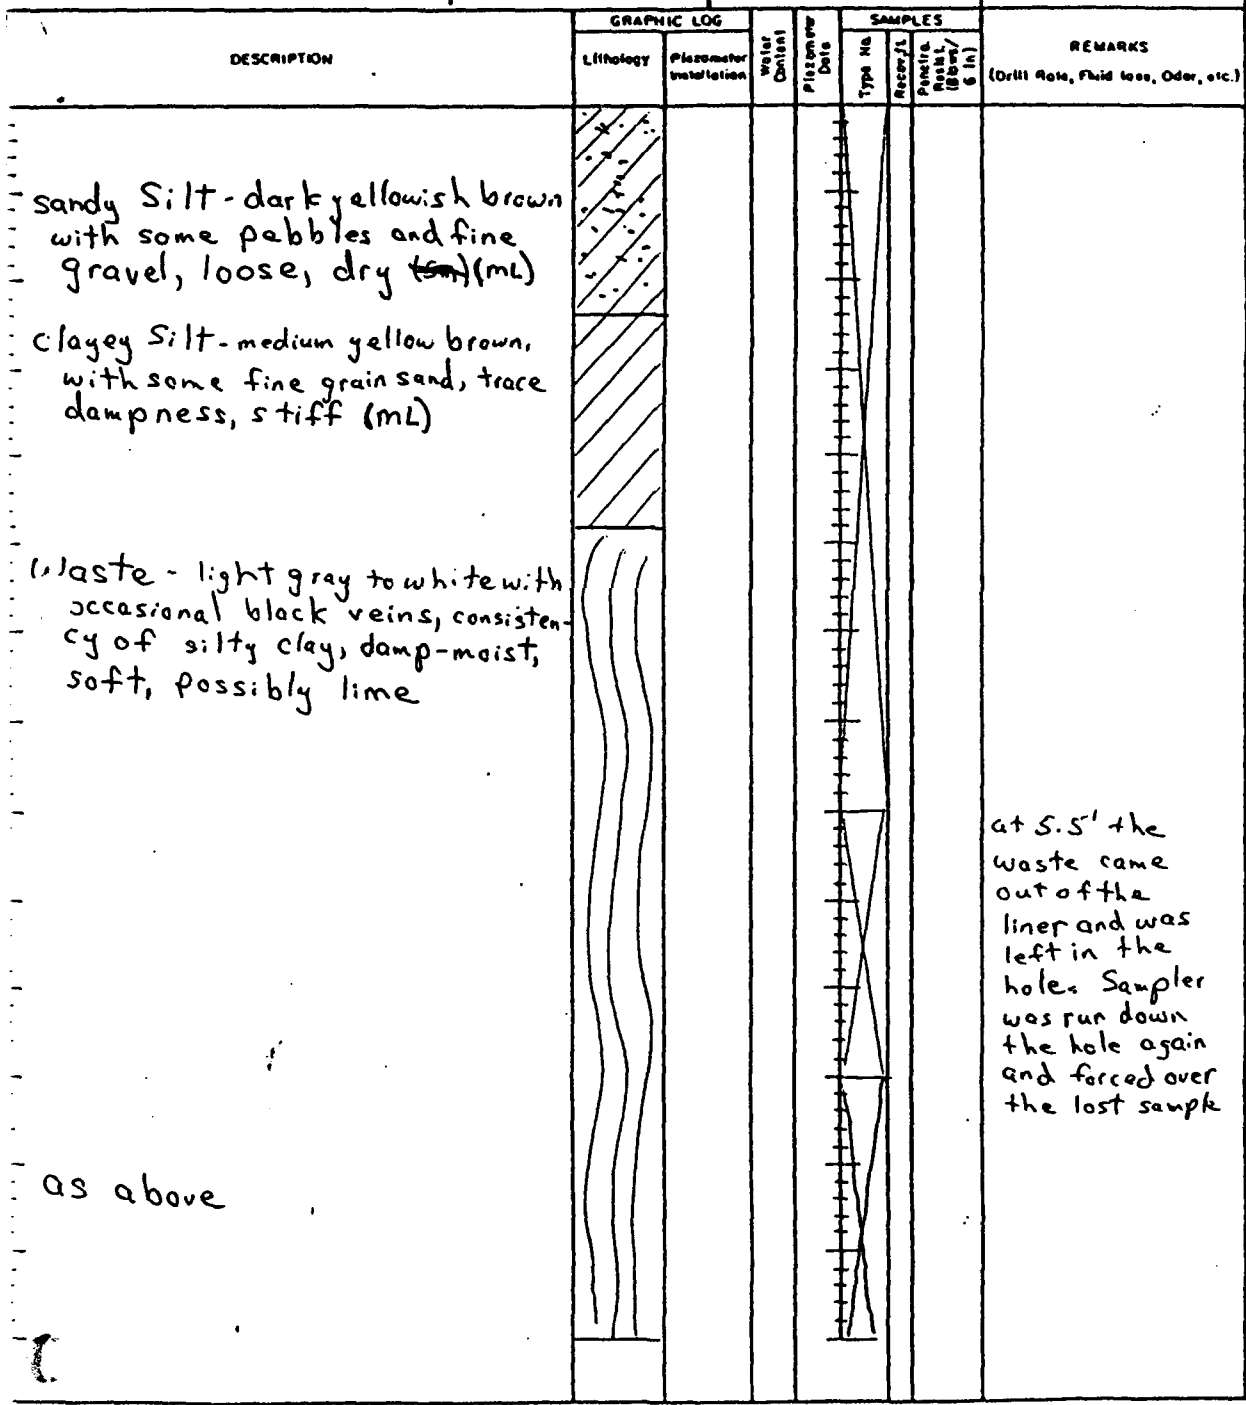 DESCRIPTION
GRAPHIC LOG
Lithology
Piezometer
Installation
Water
Content
Piezometer
Data
SAMPLES
Type No.
Recov, ft.
Penetra.
Resist.
(Blows/
6 in)
REMARKS
(Drill Rate, Fluid loss, Odor, etc.)
sandy Silt - dark yellowish brown
with some pebbles and fine
gravel, loose, dry (sm)(mL)
clayey Silt - medium yellow brown,
with some fine grain sand, trace
dampness, stiff (mL)
Waste - light gray to white with
occasional black veins, consisten-
cy of silty clay, damp-moist,
soft, possibly lime
at 5.5' the
waste came
out of the
liner and was
left in the
hole. Sampler
was run down
the hole again
and forced over
the lost sample
as above